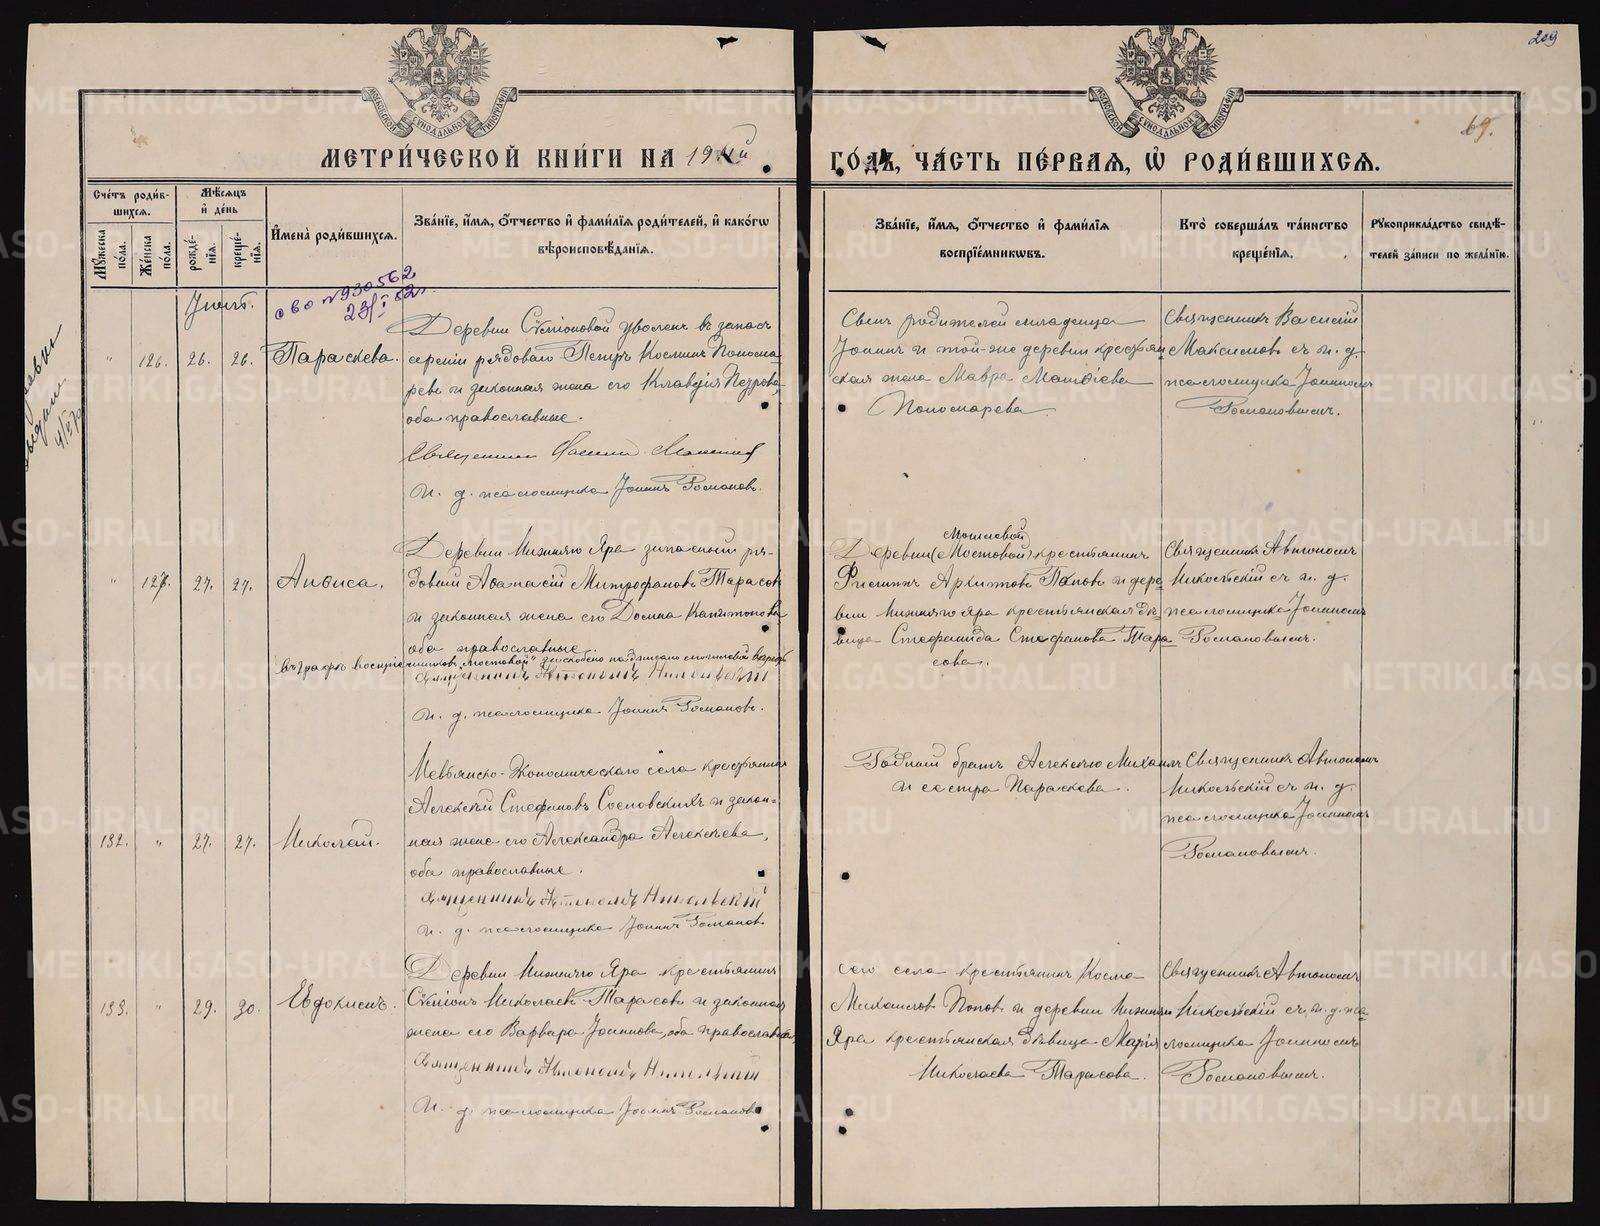 209
69.
МОСКОВСКОЙ СѴНОДАЛЬНОЙ ТИПОГРАФІИ
МОСКОВСКОЙ СѴНОДАЛЬНОЙ ТИПОГРАФІИ
МЕТРИ́ЧЕСКОЙ КНИ́ГИ НА 19
ГО́ДЪ, ЧА́СТЬ ПЕ́РВАЯ, Ѡ҆ РОДИ́ВШИХСЯ.
Сче́тъ роди́в-
шихся.
Мѣ́сяцъ
и҆ де́нь
Му́жеска по́ла.
Же́нска по́ла.
рожде́-
нїя.
креще́-
нїя.
И҆мена̀ роди́вшихся.
Зва́нїе, и҆́мя, ѻ҆́тчество и҆ фами́лїя роди́телей, и҆ како́гѡ
вѣроисповѣ́данїя.
Зва́нїе, и҆́мя, ѻ҆́тчество и҆ фами́лїя
воспрїе́мникѡвъ.
Кто̀ соверша́лъ та́инство
креще́нїя.
Рꙋкоприкла́дство свидѣ́-
телей за́писи по жела́нїю.
№930562
23/I
" 126. 26. 26. Параскева.
Деревни Сѵмоновой уволенъ въ запасъ
арміи рядовой Петръ Космин Понома-
ревъ и законная жена его Клавдія Петрова,
оба православные.
Священникъ Василій
И. д. псаломщика Іоаннъ Романовъ.
Своякъ родителей младенца
Іоаннъ и той-же деревни крестьян
ская жена Мавра Матѳіева
Пономарева
Священникъ Василій
Максимовъ съ и. д.
псаломщика Іоанномъ
Романовымъ.
" 127. 27. 27. Анѳиса.
Деревни Нижняго Яра запасный ря-
довой Аѳанасій Митрофановъ Тарасовъ
и законная жена его Домна Капитонова
оба православные.
Въ графѣ воспріемниковъ „Мостовой"
Священникъ Автономъ Никольскій
И. д. псаломщика Іоаннъ Романовъ.
могилевой
Деревни (Мостовой) крестьянинъ
Архиповъ Поповъ и дере
вни Нижняго Яра крестьянская дѣ-
вица Стефанида Стефанова Тара
сова.
Священникъ Автономъ
Никольскій съ и. д.
псаломщика Іоанномъ
Романовымъ.
132. " 27. 27. Николай.
Невьянско-Экономическаго села крестьянинъ
Алексѣй Стефановъ Сосновскихъ и закон-
ная жена его Александра Алексѣева,
оба православные.
Священникъ Автономъ Никольскій
И. д. псаломщика Іоаннъ Романовъ
Родной братъ Алексѣю Михаилъ
и сестра Параскева.
Священникъ Автономъ
Никольскій съ и. д.
псаломщика Іоанномъ
Романовымъ.
133. " 29. 30. Евдокимъ.
Деревни Нижняго Яра крестьянинъ
Сѵмонъ Николаевъ Тарасовъ и законная
жена его Варвара Іоаннова, оба православные
Священникъ Автономъ Никольскій
И. д. псаломщика Іоаннъ Романовъ
сего села крестьянинъ Косма
Михаиловъ Поповъ и деревни Нижняго
Яра крестьянская дѣвица Марія
Николаева Тарасова.
Священникъ Автономъ
Никольскій съ и. д. пса-
ломщика Іоанномъ
Романовымъ.
METRIKI.GASO-URAL.RU